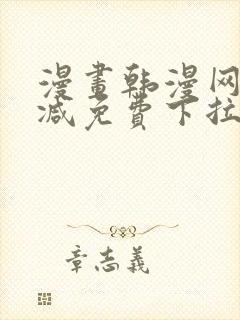 漫畫韩漫网
减免費下拉
章志義